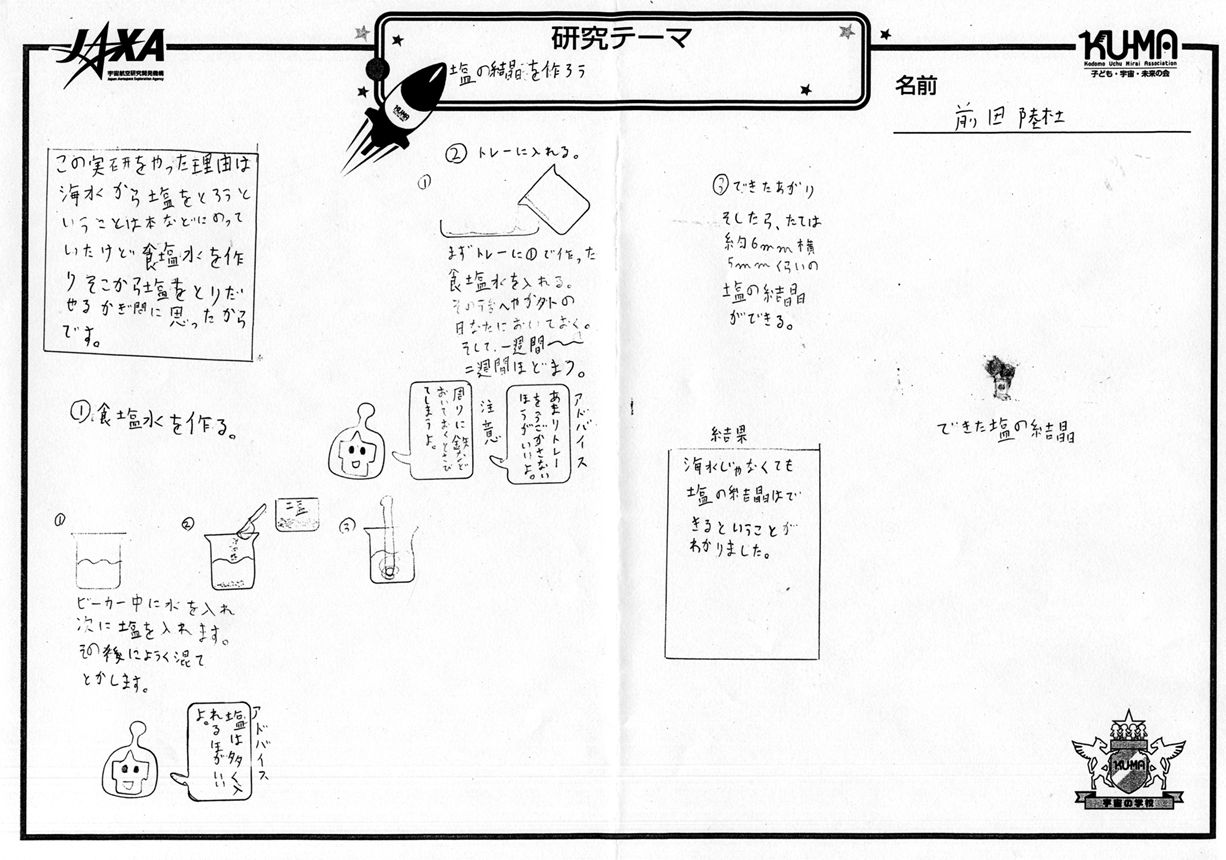 JAXA
宇宙航空研究開発機構
Japan Aerospace Exploration Agency
研究テーマ
塩の結晶を作ろう
KUMA
KU-MA
Kodomo Uchu Mirai Association
子ども・宇宙・未来の会
名前
前田陸杜
この実研をやった理由は
海水から塩をとろうと
いうことは本などにのって
いたけど食塩水を作
りそこから塩をとりだ
せるかぎ問に思ったから
です。
①食塩水を作る。
①
②
塩
③
ビーカー中に水を入れ
次に塩を入れます。
その後にようく混て
とかします。
アドバイス
塩は多く入
れるほがいい
よ。
② トレーに入れる。
①
まずトレーに①で作った
食塩水を入れる。
その後へやか外の
日なたにおいておく。
そして、一週間〜
二週間ほどまつ。
アドバイス
あまりトレー
をうごかさない
ほうがいいよ。
注意
周りに鉄など
おいておくとさび
てしまうよ。
③できたあがり
そしたら、たては
約6mm横
5mmくらいの
塩の結晶
ができる。
結果
海水じゃなくても
塩の結晶はで
きるということが
わかりました。
できた塩の結晶
KUMA
宇宙の学校